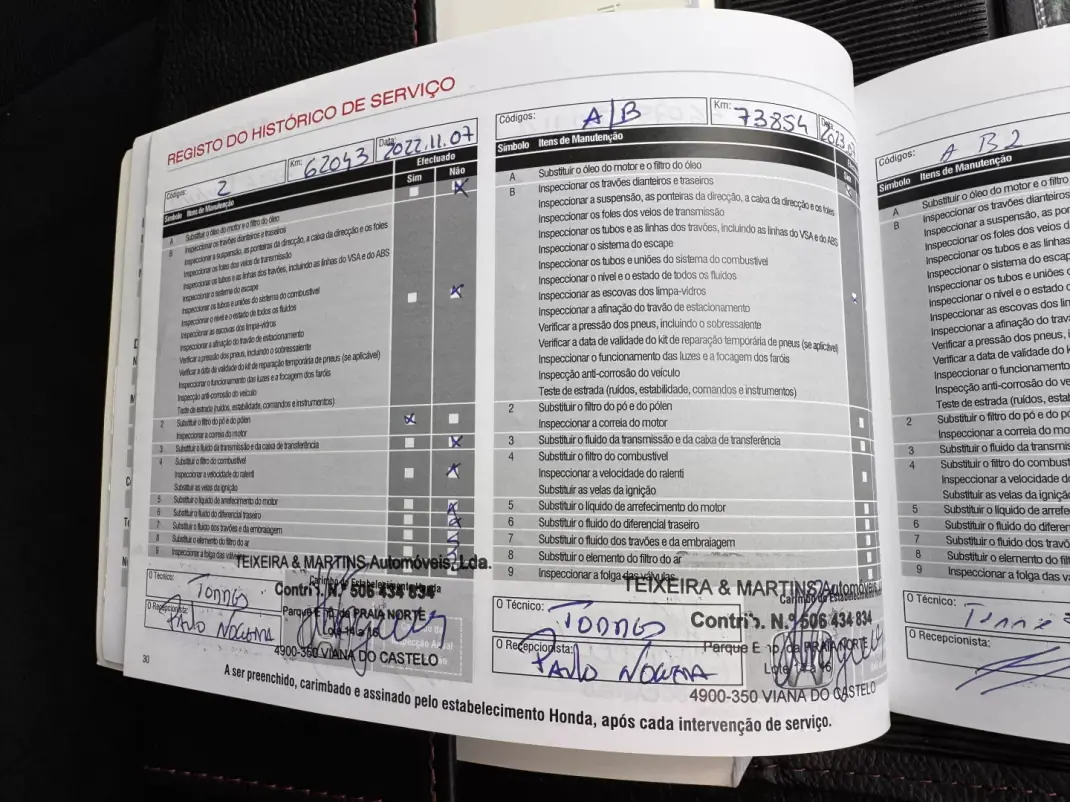 REGISTO DO HISTÓRICO DE SERVIÇO
Códigos: 2
Km: 62043
Data: 2022.11.07
Símbolo Itens de Manutenção
Efectuado
Sim Não
A Substituir o óleo do motor e o filtro do óleo
B Inspeccionar os travões dianteiros e traseiros
Inspeccionar a suspensão, as ponteiras da direcção, a caixa da direcção e os foles
Inspeccionar os foles dos veios de transmissão
Inspeccionar os tubos e as linhas dos travões, incluindo as linhas do VSA e do ABS
Inspeccionar o sistema do escape
Inspeccionar os tubos e uniões do sistema do combustível
Inspeccionar o nível e o estado de todos os fluidos
Inspeccionar as escovas dos limpa-vidros
Inspeccionar a afinação do travão de estacionamento
Verificar a pressão dos pneus, incluindo o sobressalente
Verificar a data de validade do kit de reparação temporária de pneus (se aplicável)
Inspeccionar o funcionamento das luzes e a focagem dos faróis
Inspecção anti-corrosão do veículo
Teste de estrada (ruídos, estabilidade, comandos e instrumentos)
2 Substituir o filtro do pó e do pólen
Inspeccionar a correia do motor
3 Substituir o fluido da transmissão e da caixa de transferência
4 Substituir o filtro do combustível
Inspeccionar a velocidade do ralenti
Substituir as velas da ignição
5 Substituir o líquido de arrefecimento do motor
6 Substituir o fluido do diferencial traseiro
7 Substituir o fluido dos travões e da embraiagem
8 Substituir o elemento do filtro do ar
9 Inspeccionar a folga das válvulas
TEIXEIRA & MARTINS Automóveis, Lda.
Contrib. N.º 506 434 834
Parque Emp. da PRAIA NORTE
Lote 14 a 16
4900-350 VIANA DO CASTELO
O Técnico:
O Recepcionista: PAULO NOGUEIRA
30
Códigos: A/B
Km: 73854
Data: 2023.0
Símbolo Itens de Manutenção
Sim
A Substituir o óleo do motor e o filtro do óleo
B Inspeccionar os travões dianteiros e traseiros
Inspeccionar a suspensão, as ponteiras da direcção, a caixa da direcção e os foles
Inspeccionar os foles dos veios de transmissão
Inspeccionar os tubos e as linhas dos travões, incluindo as linhas do VSA e do ABS
Inspeccionar o sistema do escape
Inspeccionar os tubos e uniões do sistema do combustível
Inspeccionar o nível e o estado de todos os fluidos
Inspeccionar as escovas dos limpa-vidros
Inspeccionar a afinação do travão de estacionamento
Verificar a pressão dos pneus, incluindo o sobressalente
Verificar a data de validade do kit de reparação temporária de pneus (se aplicável)
Inspeccionar o funcionamento das luzes e a focagem dos faróis
Inspecção anti-corrosão do veículo
Teste de estrada (ruídos, estabilidade, comandos e instrumentos)
2 Substituir o filtro do pó e do pólen
Inspeccionar a correia do motor
3 Substituir o fluido da transmissão e da caixa de transferência
4 Substituir o filtro do combustível
Inspeccionar a velocidade do ralenti
Substituir as velas da ignição
5 Substituir o líquido de arrefecimento do motor
6 Substituir o fluido do diferencial traseiro
7 Substituir o fluido dos travões e da embraiagem
8 Substituir o elemento do filtro do ar
9 Inspeccionar a folga das válvulas
TEIXEIRA & MARTINS Automóveis
Contrib. N.º 506 434 834
Parque Emp. da PRAIA NORTE
Lote 14 a 16
4900-350 VIANA DO CASTELO
O Técnico:
O Recepcionista: PAULO NOGUEIRA
A ser preenchido, carimbado e assinado pelo estabelecimento Honda, após cada intervenção de serviço.
Códigos: A B2
Símbolo Itens de Manutenção
A Substituir o óleo do motor e o filtro
B Inspeccionar os travões dianteiros
Inspeccionar a suspensão, as pon
Inspeccionar os foles dos veios d
Inspeccionar os tubos e as linhas
Inspeccionar o sistema do escap
Inspeccionar os tubos e uniões
Inspeccionar o nível e o estado d
Inspeccionar as escovas dos lim
Inspeccionar a afinação do trav
Verificar a pressão dos pneus, i
Verificar a data de validade do k
Inspeccionar o funcionamento
Inspecção anti-corrosão do ve
Teste de estrada (ruídos, estab
2 Substituir o filtro do pó e do pó
Inspeccionar a correia do mo
3 Substituir o fluido da transmis
4 Substituir o filtro do combust
Inspeccionar a velocidade do
Substituir as velas da igniçã
5 Substituir o líquido de arrefe
6 Substituir o fluido do diferen
7 Substituir o fluido dos travõ
8 Substituir o elemento do filt
9 Inspeccionar a folga das va
O Técnico:
O Recepcionista: